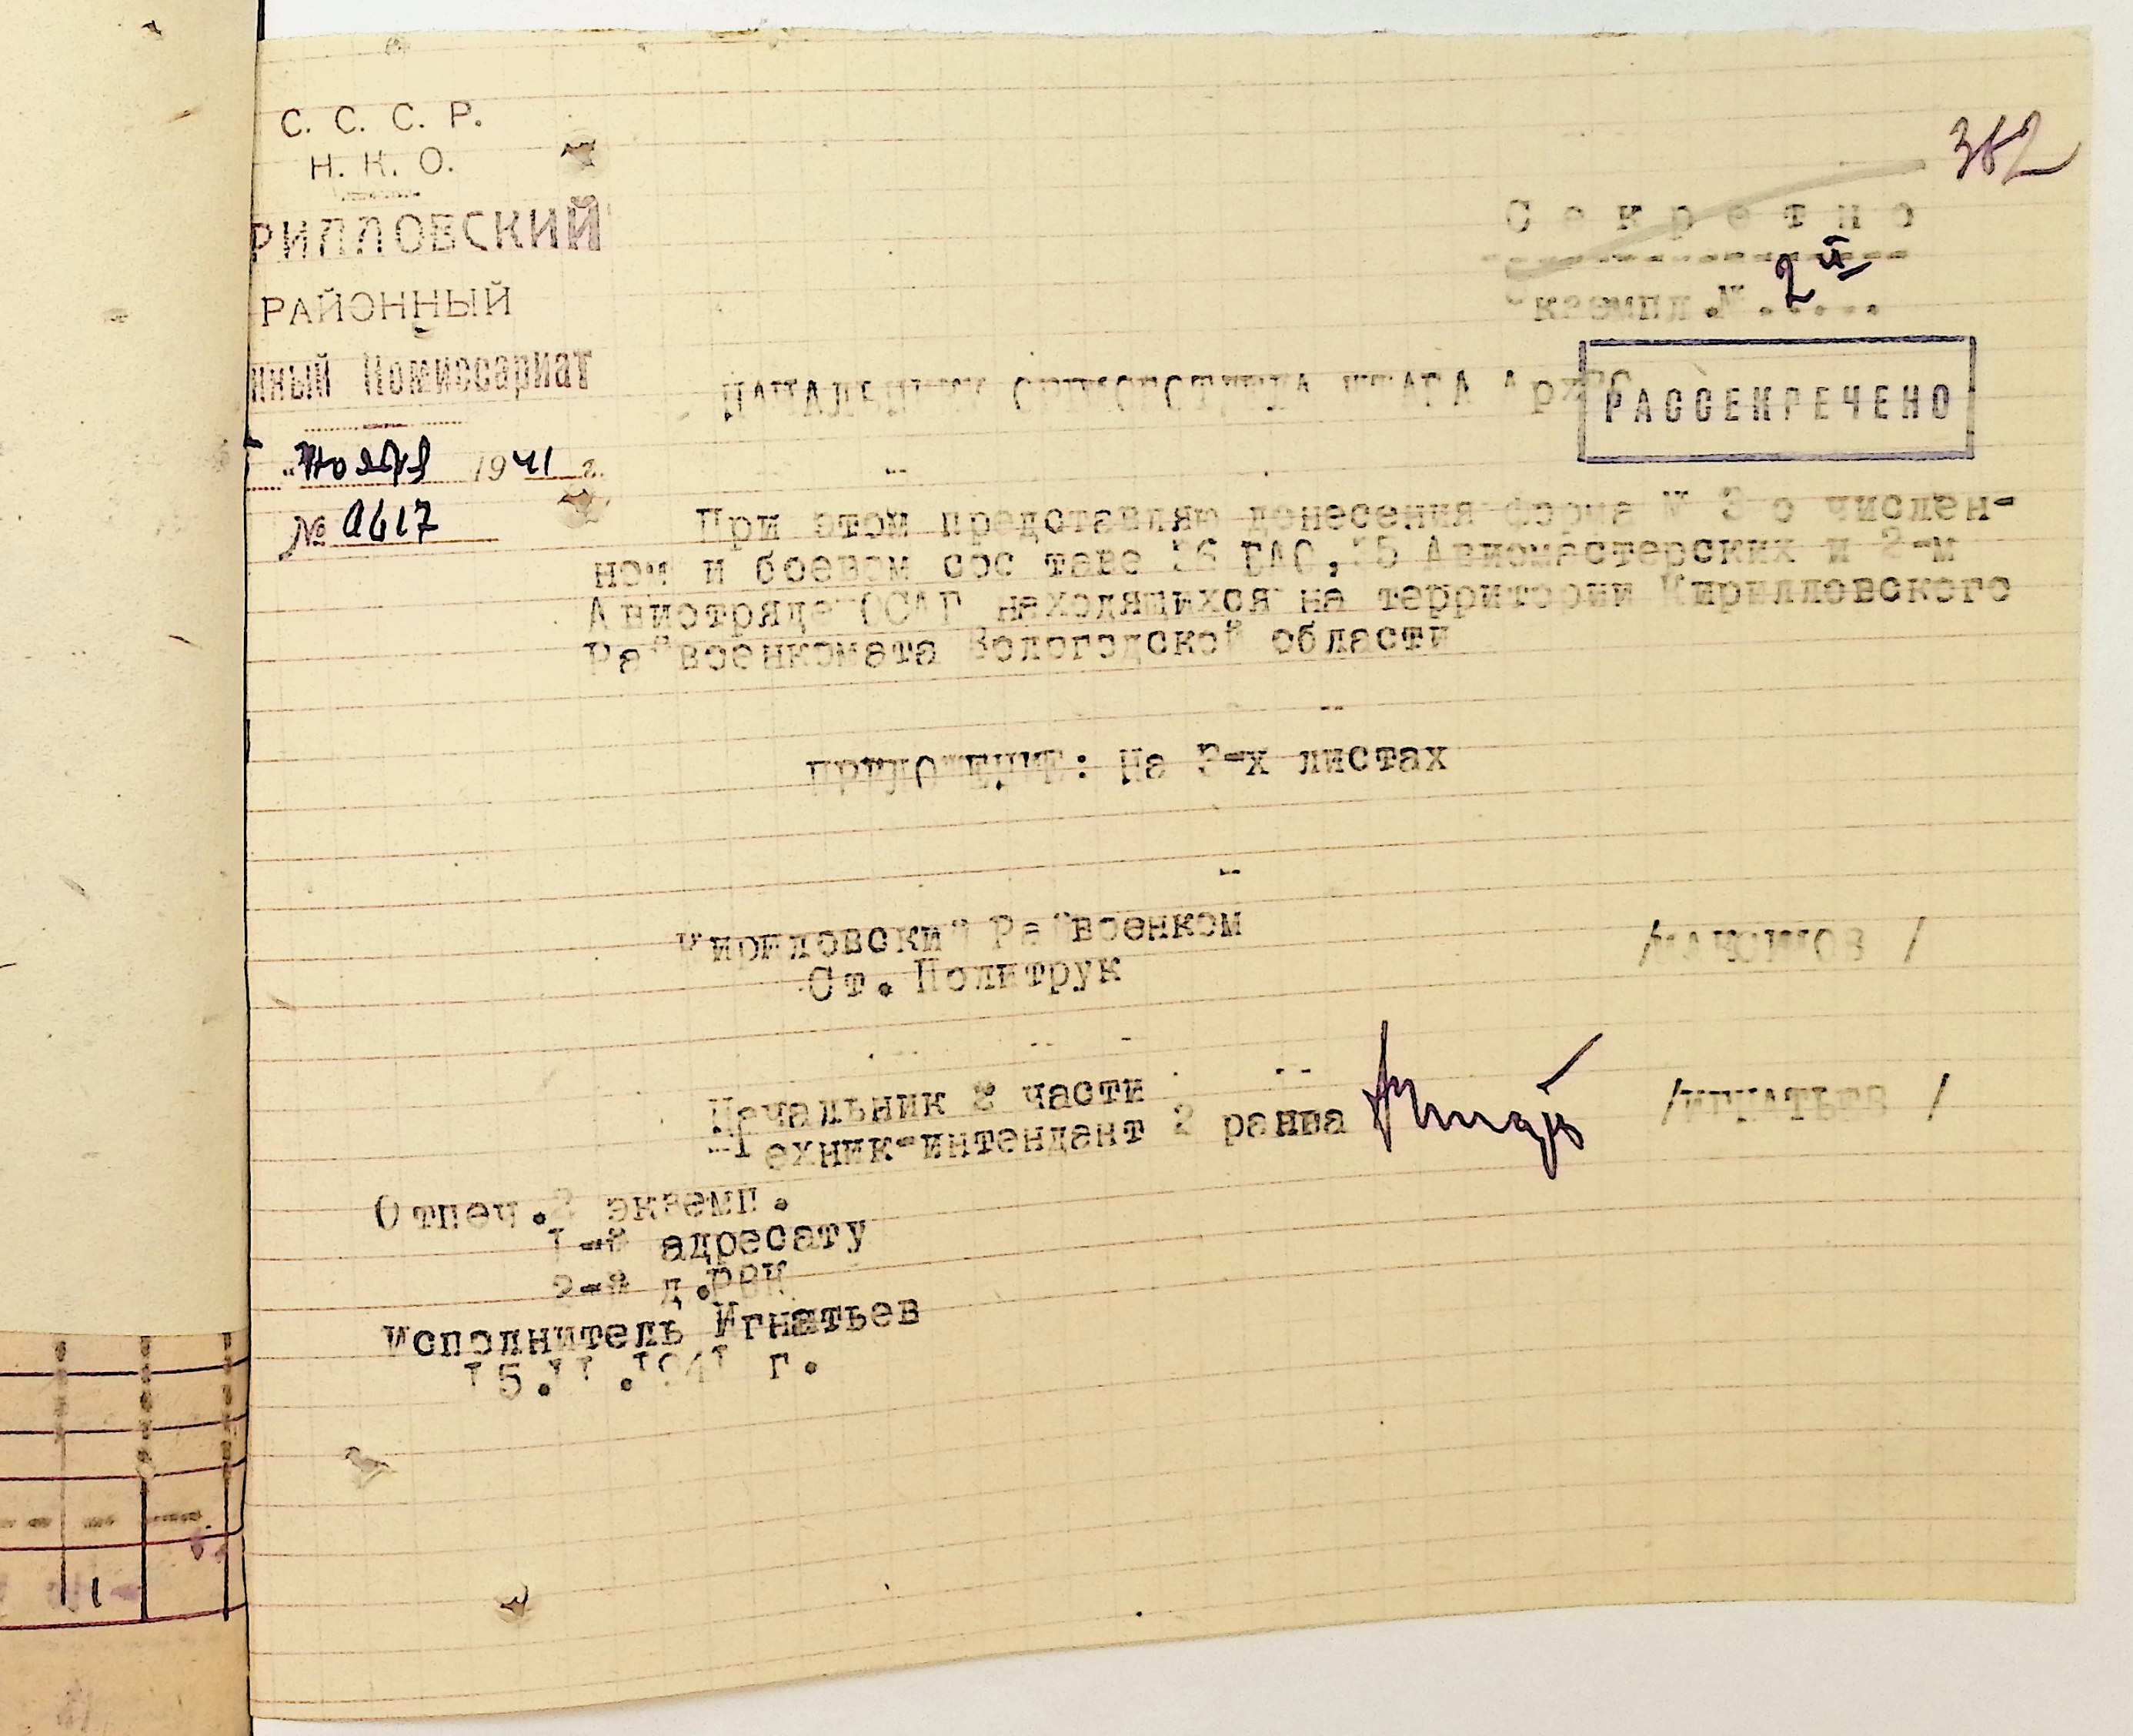 С. С. С. Р.
Н. К. О.
РИЛЛОВСКИЙ
РАЙОННЫЙ
нный Комиссариат
ноября 1941 г.
№ 0417
382
Секретно
кземпл.№ 2й
РАССЕКРЕЧЕНО
НАЧАЛЬНИКУ ОРГМОБОТДЕЛА ШТАБА
При этом представляю донесения форма № 3 о числен-
ном и боевом сос таве 26 БАО, 25 Авиомастерских и 2-м
Авиотряде находящихся на территории Кирилловского
Райвоенкомата Вологодской области
ПРИЛОЖЕНИЕ: На 3-х листах
Кирилловский Райвоенком
Ст. Политрук
Начальник 2 части
Техник-интендант 2 ранга
/ИГНАТЬЕВ /
Отпеч.2 экземп.
1-й адресату
2-й д.РВК
Исполнитель Игнатьев
15.11.1941 г.
1